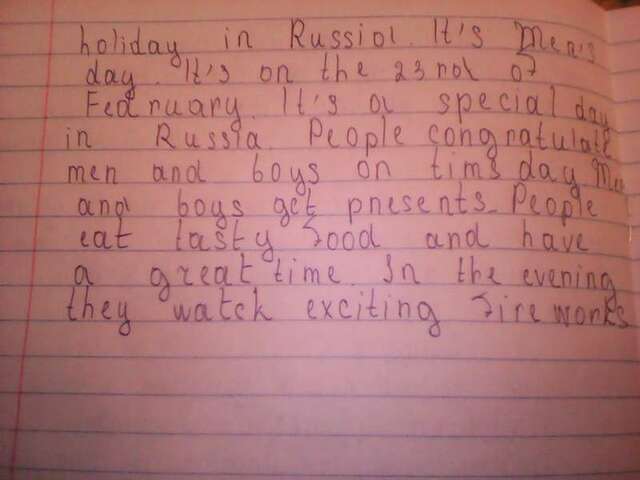 holiday in Russia. It's Men's
day. It's on the 23nd of
Fedruary. It's a special day
in Russia. People congratulate
men and boys on tims day Men
and boys get pnesents. People
eat tasty food and have
a great time. In the evening
they watch exciting fireworks